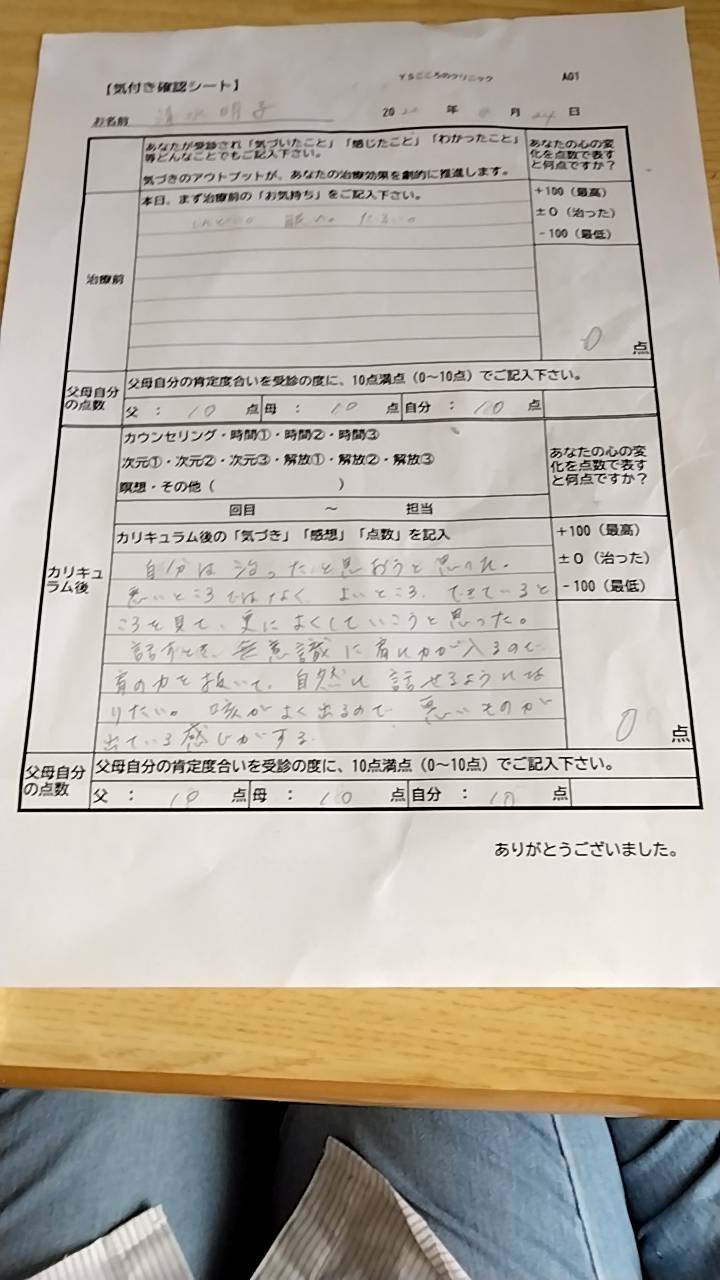 【気付き確認シート】
YSこころのクリニック
A01
お名前 清水明子
20 年 月 24 日
あなたが受診され「気づいたこと」「感じたこと」「わかったこと」
等どんなことでもご記入下さい。
気づきのアウトプットが、あなたの治療効果を劇的に推進します。
あなたの心の変
化を点数で表す
と何点ですか？
治療前
本日、まず治療前の「お気持ち」をご記入下さい。
しんどい。 眠い。 だるい。
+100（最高）
±0（治った）
-100（最低）
0 点
父母自分
の点数
父母自分の肯定度合いを受診の度に、10点満点（0～10点）でご記入下さい。
父 ： 10 点 母 ： 10 点 自分 ： 10 点
カリキュ
ラム後
カウンセリング・時間①・時間②・時間③
次元①・次元②・次元③・解放①・解放②・解放③
瞑想・その他（ ）
回目 ～ 担当
あなたの心の変
化を点数で表す
と何点ですか？
カリキュラム後の「気づき」「感想」「点数」を記入
+100（最高）
±0（治った）
-100（最低）
自分は治ったと思おうと思った。
悪いところではなく、よいところ、できていると
ころを見て、更によくしていこうと思った。
話すとき、無意識に肩に力が入るので、
肩の力を抜いて、自然に話せるようにな
りたい。咳がよく出るので、悪いものが
出ている感じがする。
0 点
父母自分
の点数
父母自分の肯定度合いを受診の度に、10点満点（0～10点）でご記入下さい。
父 ： 10 点 母 ： 10 点 自分 ： 10 点
ありがとうございました。